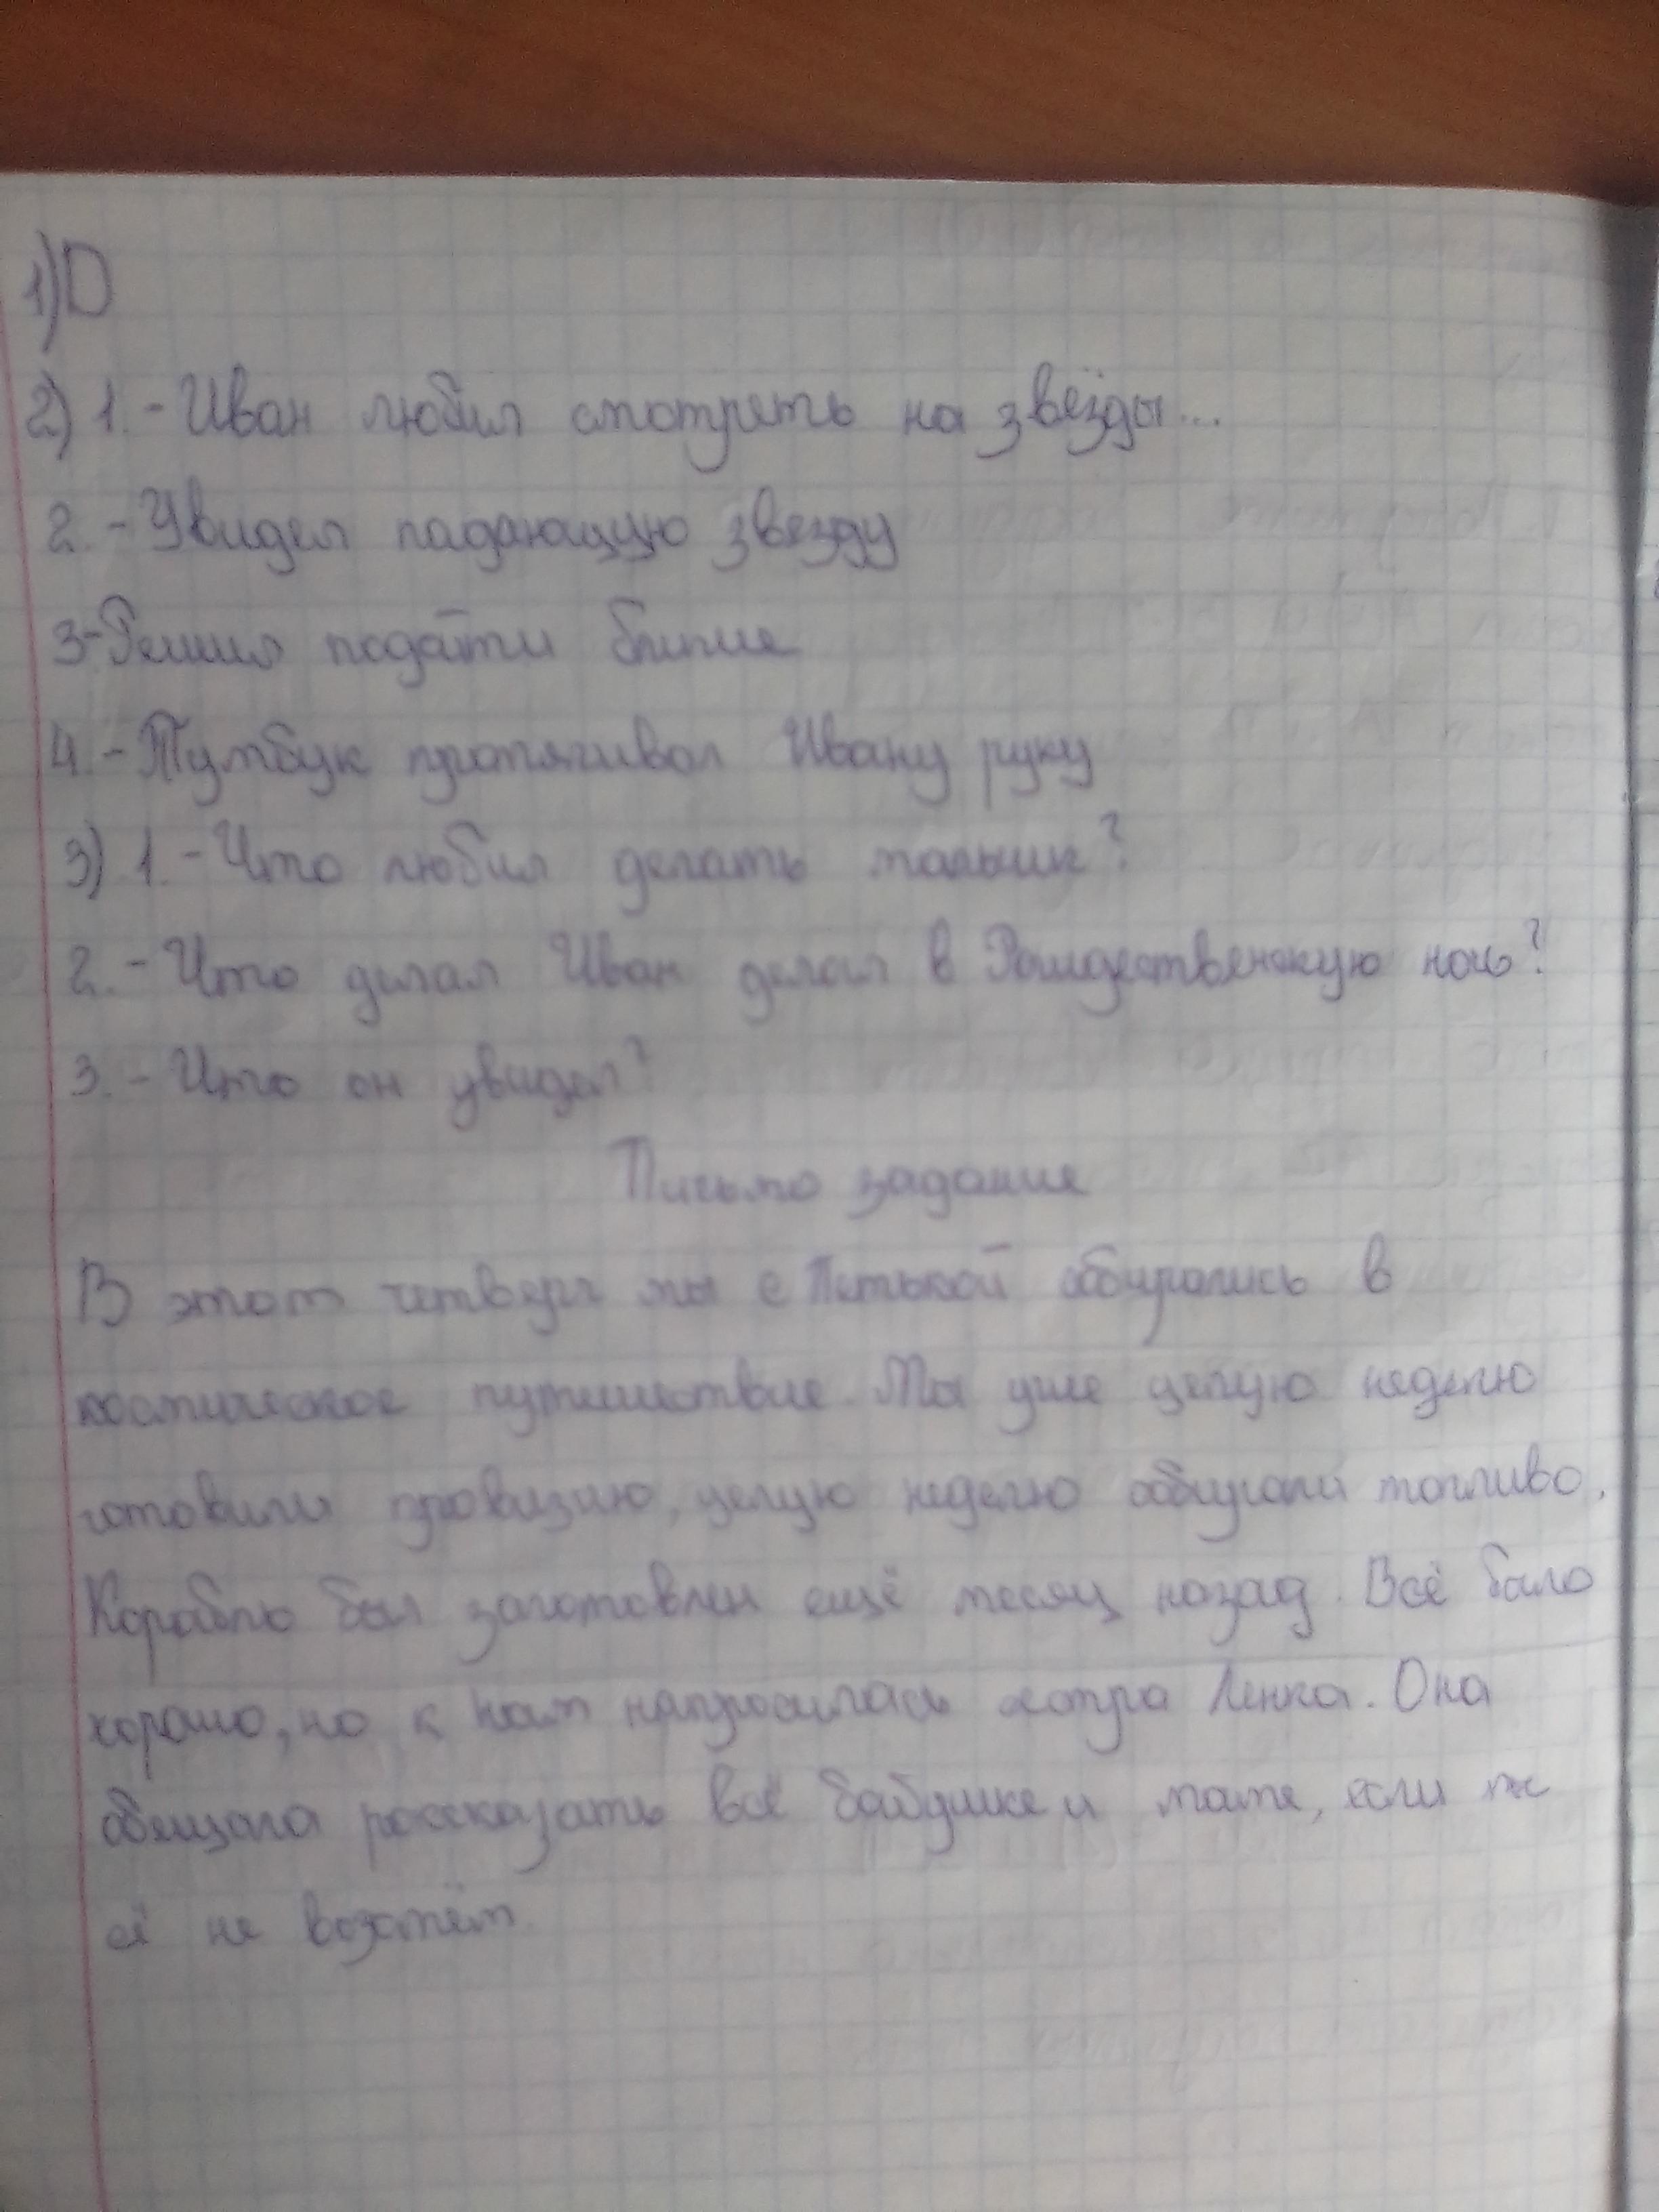 1) D
2) 1. - Иван любил смотреть на звёзды...
2. - Увидел падающую звезду
3 - Решил подойти ближе
4. - Тумбук протягивал Ивану руку
3) 1. - Что любил делать малыш?
2. - Что делал Иван делал в Рождественскую ночь?
3. - Что он увидел?
Письмо задание
В этот четверг мы с Петькой собирались в
космическое путешествие. Мы уже целую неделю
готовили провизию, целую неделю собирали топливо.
Корабль был заготовлен ещё месяц назад. Всё было
хорошо, но к нам напросилась сестра Ленка. Она
обещала рассказать всё бабушке и маме, если
её не возьмём.